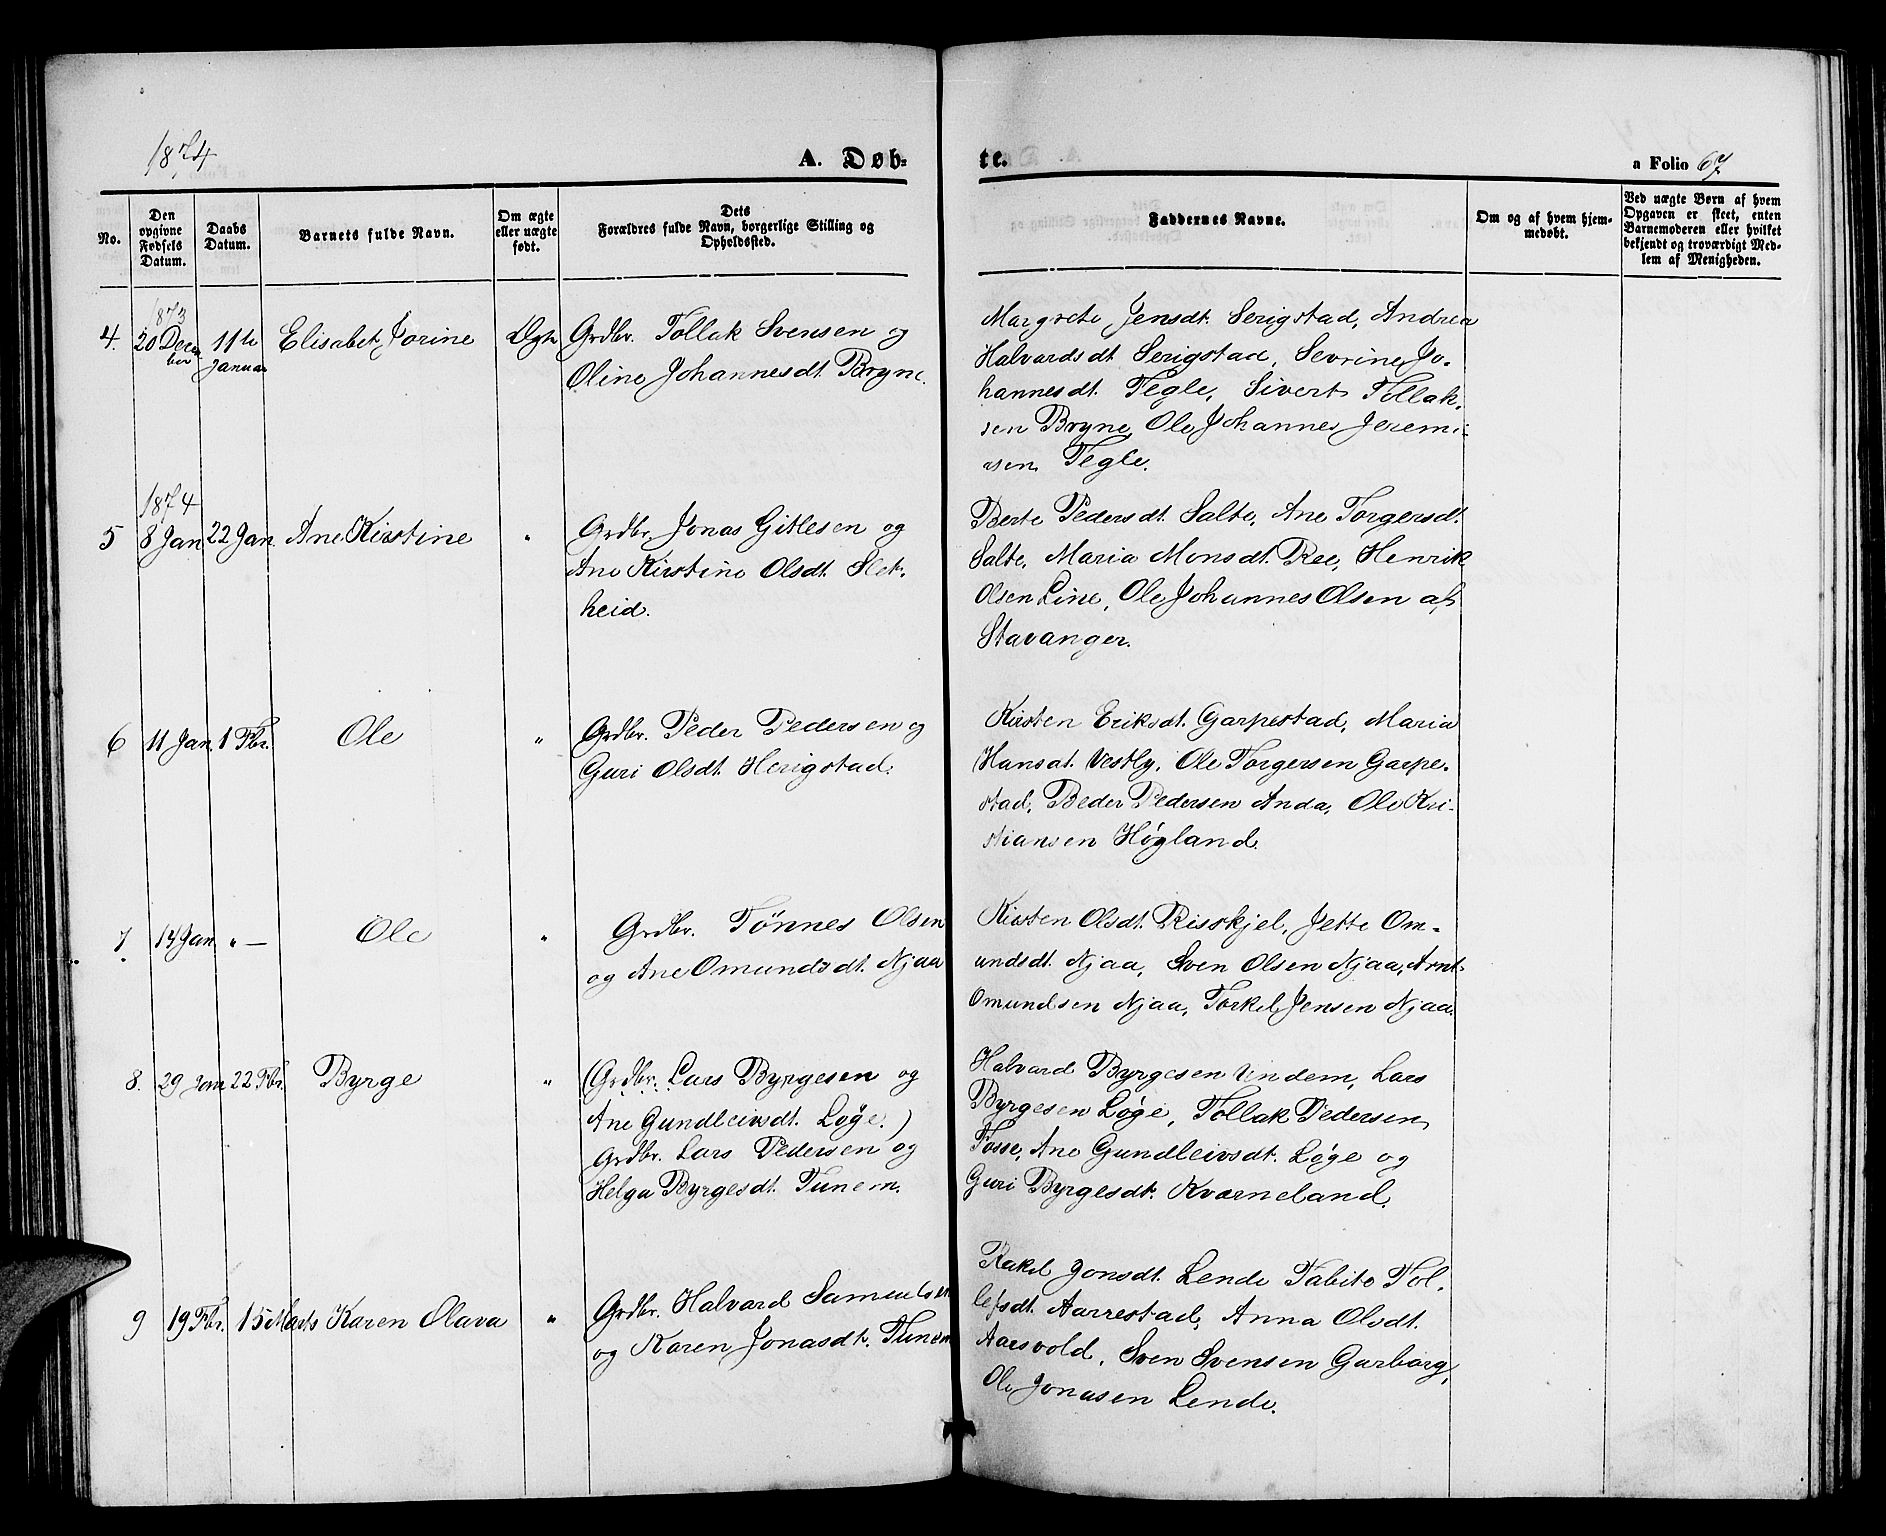 1874
A. Døb-
te.
a Folio 67
No.
Den opgivne Fødsels Datum.
Daabs Datum.
Barnets fulde Navn.
Om ægte eller uægte født.
Dets Forældres fulde Navn, borgerlige Stilling og Opholdssted.
Faddernes Navne.
Om og af hvem hjem-
medøbt.
Ved uægte Børn af hvem
Opgaven er skeet, enten
Barnemoderen eller hvilket
bekjendt og troværdigt Med-
lem af Menigheden.
1873
4. 20 Decem
ber
11te
Januar
Elisabet Jorine
Ægte
Grdbr. Tollak Svensen og
Oline Johannesdt. Bryne.
Margrete Jensdt. Serigstad, Andrea
Halvardsdt. Serigstad, Sevrine Jo-
hannesdt. Tegle, Sivert Tollak-
sen Bryne, Ole Johannes Jeremi-
asen Tegle.
1874
5 8 Jan 22 Jan. Ane Kirstine "
Grdbr. Jonas Gitlesen og
Ane Kirstine Olsdt. Slet-
heid.
Berte Pedersdt. Salte, Ane Torgersdt.
Salte, Maria Monsdt. Ree, Henrik
Olsen Line, Ole Johannes Olsen af
Stavanger.
6 11 Jan. 1 Fbr. Ole "
Grdbr. Peder Pedersen og
Guri Olsdt. Herigstad.
Kirsten Eriksdt. Garpestad, Maria
Hansdt. Vestly, Ole Torgersen Garpe-
stad, Peder Pedersen Anda, Ole Kri-
stiansen Høgland.
7. 14 Jan. " — Ole "
Grdbr. Tönnes Olsen
og Ane Omundsdt. Njaa
Kirsten Olsdt. Risskjel, Jette Om-
undsdt. Njaa, Sven Olsen Njaa, Arnt
Omundsen Njaa, Torkel Jensen Njaa.
8. 29 Jan 22 Fbr. Byrge "
(Grdbr. Lars Byrgesen og
Ane Gundleivsdt. Løge.)
Grdbr. Lars Pedersen og
Helga Byrgesdt. Tunem.
Halvard Byrgesen Undem, Lars
Byrgesen Løge, Tollak Pedersen
Fosse, Ane Gundleivsdt. Løge og
Guri Byrgesdt. Kværneland.
9 19 Fbr. 15 Marts Karen Olava "
Grdbr. Halvard Samuelsen
og Karen Jonasdt. Tunem
Rakel Jonsdt. Lende Tabite Tol-
lefsdt. Aarrestad, Anna Olsdt.
Aarsvold, Sven Svensen Garborg,
Ole Jonasen Lende.